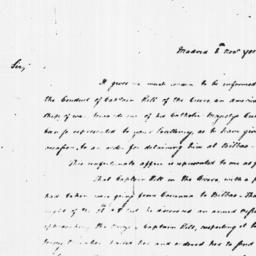 Madrid 8th Novr 178
Sir,
It gives me much concern to be informed
the Conduct of Captain Hill of the Cicero an American
ships of war towards one of his Catholic Majestys Cut
has so represented to your Excellency, as to have given
occasion to an order for detaining him at Bilbao.
This unfortunate affair is represented to me as f
That Captain Hill in the Cicero, with a p
had taken was going from Corunna to Bilbao. That
night of the he discovered an armed vessel
approaching the Captain Hill, suspecting it to
and ordered her to send